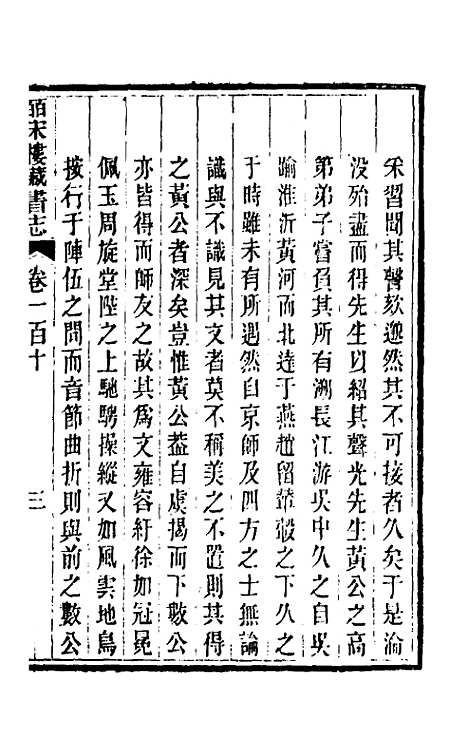 釆習聞其謦欬邈然其不可接者久矣于是淪
没殆盡而得先生以紹其聲光先生黃公之高
第弟子嘗負其所有溯長江游吳中久之自吳
踰淮沂黃河而北達于燕趙留輦轂之下久之
于時雖未有所遇然自京師及四方之士無論
識與不識見其文者莫不稱美之不置則其得
之黃公者深矣豈惟黃公葢自虞揭而下數公
亦皆得而師友之故其爲文雍容紆徐如冠冕
佩玉周旋堂陛之上馳騁操縱又如風雲地鳥
按行于陣伍之間而音節曲折則與前之數公
皕宋樓藏書志
卷一百十
三